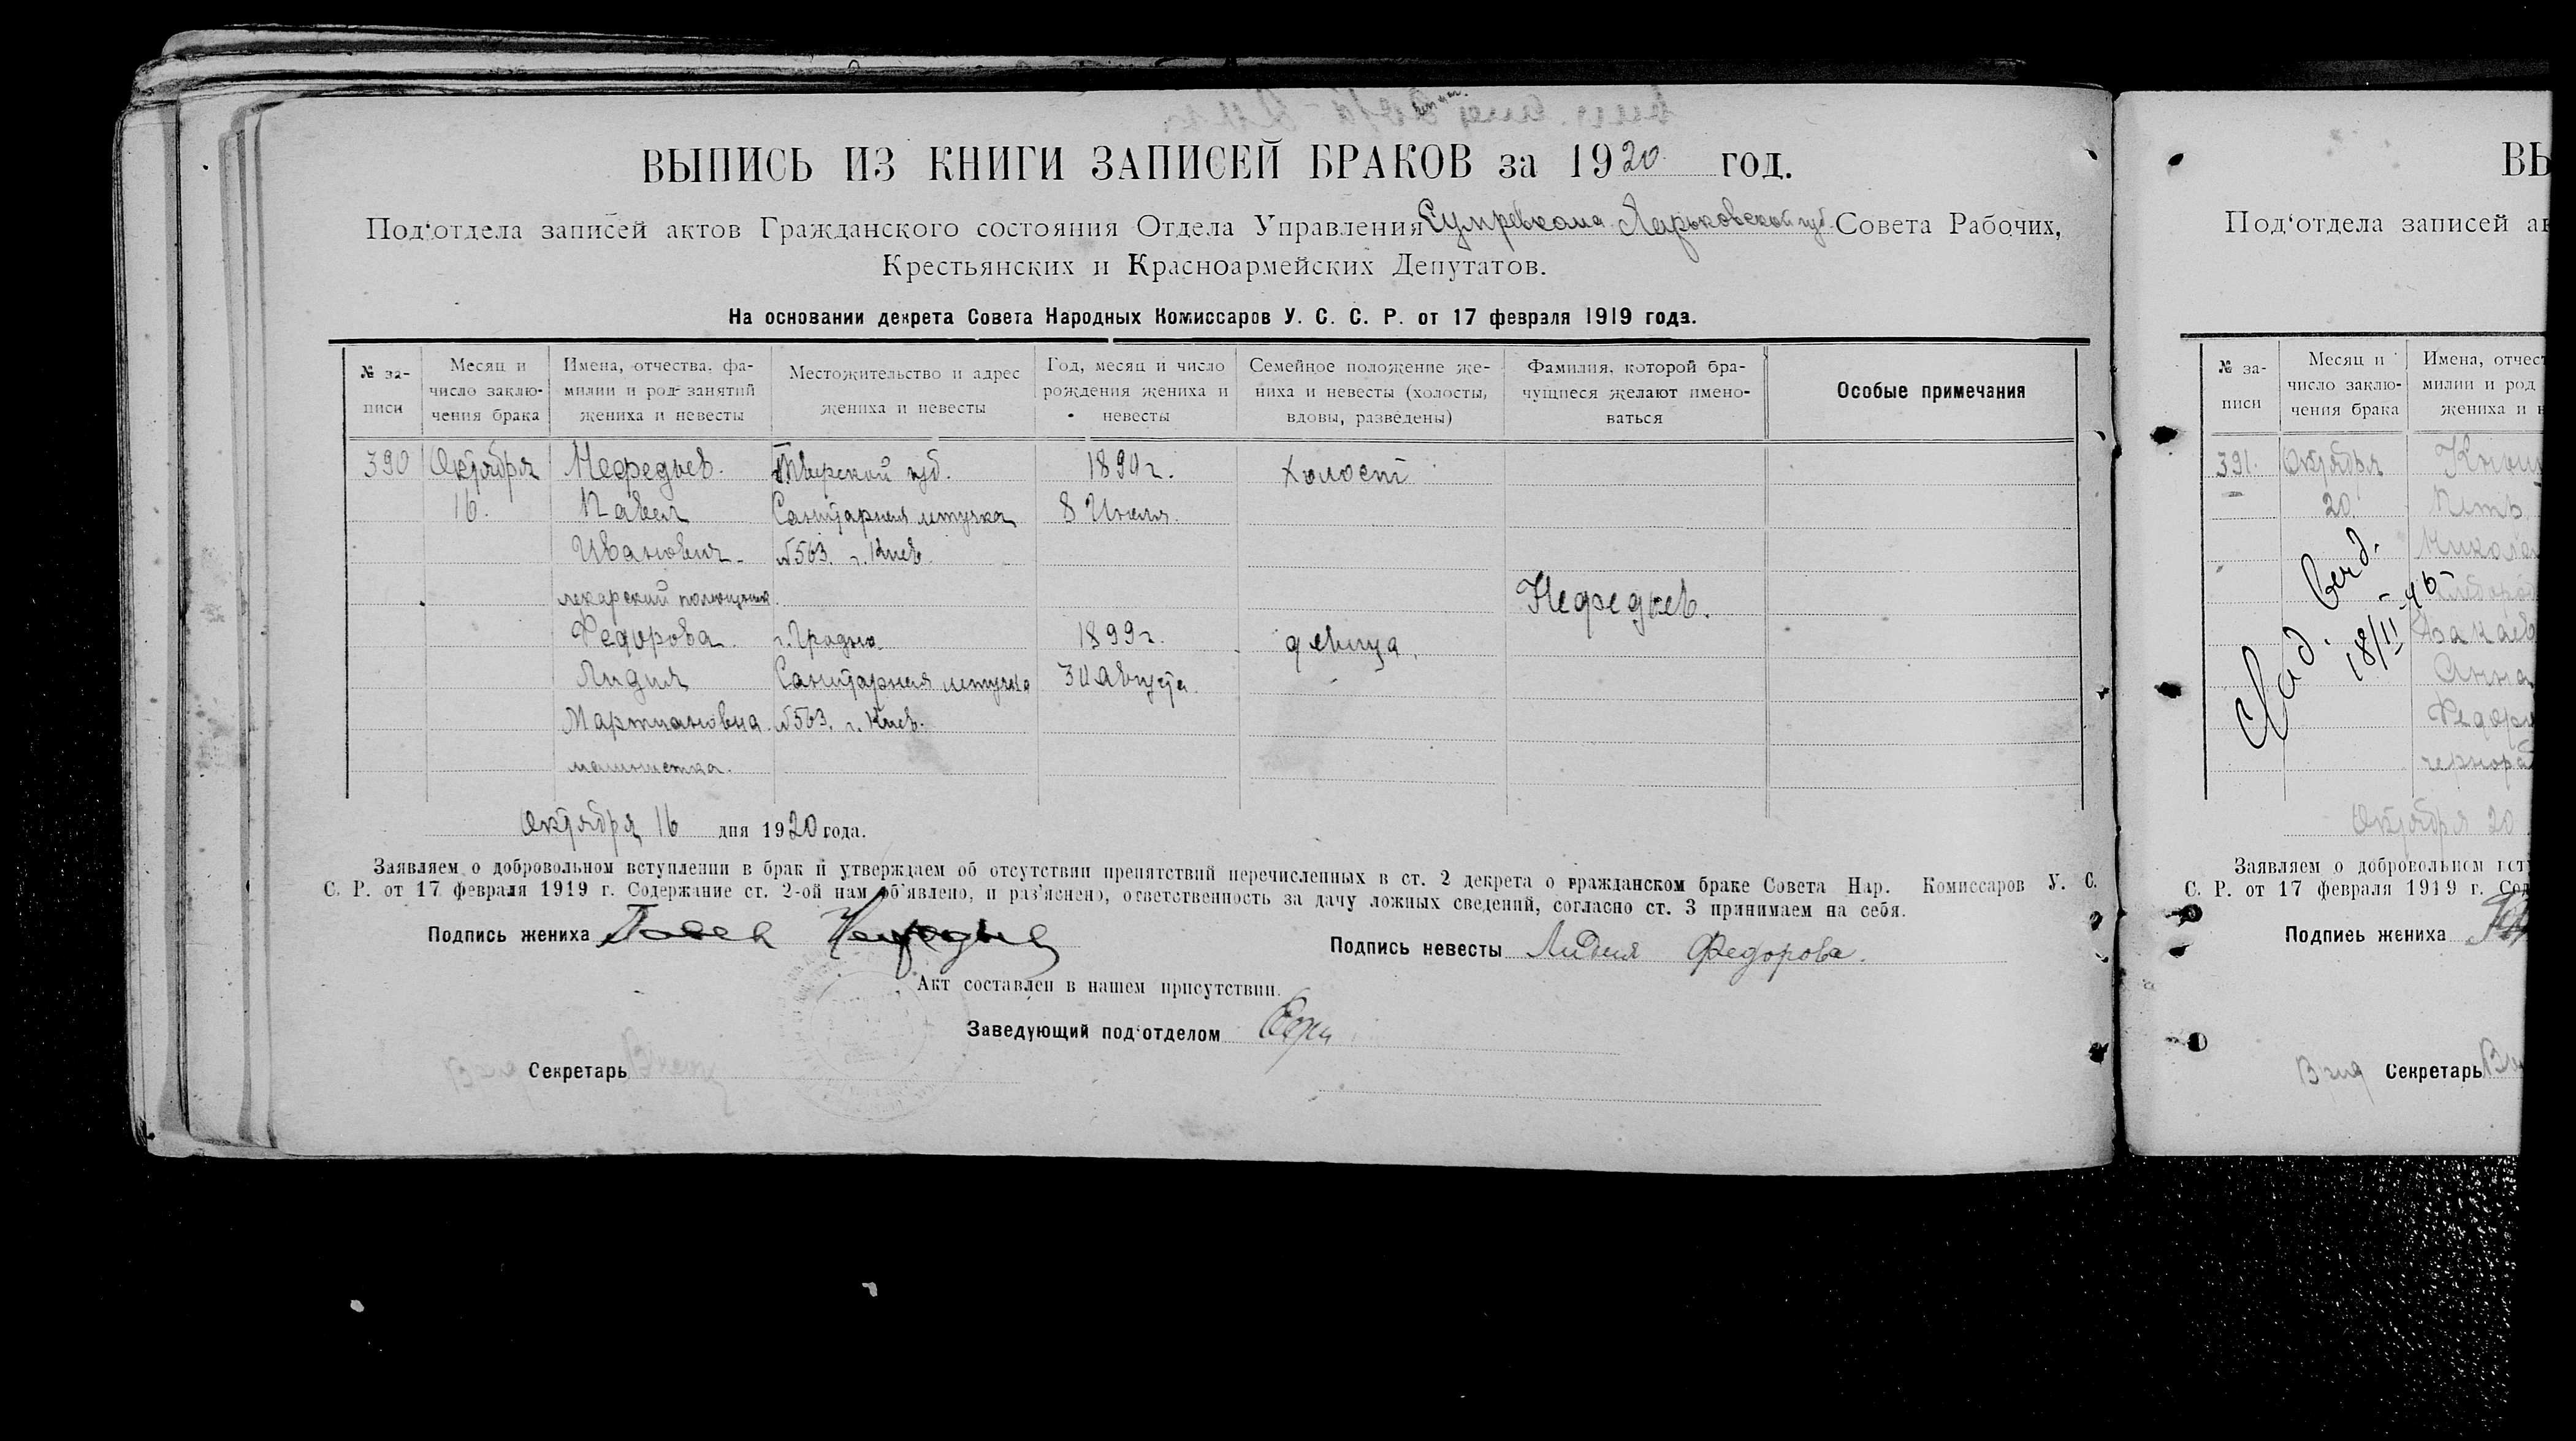 ВЫПИСЬ ИЗ КНИГИ ЗАПИСЕЙ БРАКОВ за 1920 год.
Под‘отдела записей актов Гражданского состояния Отдела Управления Сумревкома Харьковской губ. Совета Рабочих,
Крестьянских и Красноармейских Депутатов.
На основании декрета Совета Народных Комиссаров У. С. С. Р. от 17 февраля 1919 года.
№ за-
писи
Месяц и
число заклю-
чения брака
Имена, отчества, фа-
милии и род занятий
жениха и невесты
Местожительство и адрес
жениха и невесты
Год, месяц и число
рождения жениха и
невесты
Семейное положение же-
ниха и невесты (холосты,
вдовы, разведены)
Фамилия, которой бра-
чущиеся желают имено-
ваться
Особые примечания
390
Октября
16.
Нефедьев.
Павел
Иванович.
лекарский помощник.
Тверской губ.
Санитарная летучка
№563. г. Киев.
1890 г.
8 Июля.
Холост
Нефедьев.
Федорова.
Лидия
Мартиановна.
машинистка.
г. Гродно.
Санитарная летучка
№563. г. Киев.
1899 г.
30 Августа.
девица.
Октября 16 дня 1920 года.
Заявляем о добровольном вступлении в брак и утверждаем об отсутствии препятствий перечисленных в ст. 2 декрета о гражданском браке Совета Нар. Комиссаров У. С.
С. Р. от 17 февраля 1919 г. Содержание ст. 2-ой нам об‘явлено, и раз‘яснено, ответственность за дачу ложных сведений, согласно ст. 3 принимаем на себя.
Подпись жениха Павел Нефедьев
Подпись невесты Лидия Федорова.
Акт составлен в нашем присутствии.
Заведующий под‘отделом
Секретарь
ВЫ
Под‘отдела записей ак
№ за-
писи
Месяц и
число заклю-
чения брака
Имена, отчест
милии и род
жениха и н
391.
Октября
20.
Петр
Никола
Анна
Федоро
чернораб
18/II-46
Октября 20
Заявляем о добровольном вст
С. Р. от 17 февраля 1919 г. Сод
Подпись жениха
Врид Секретарь